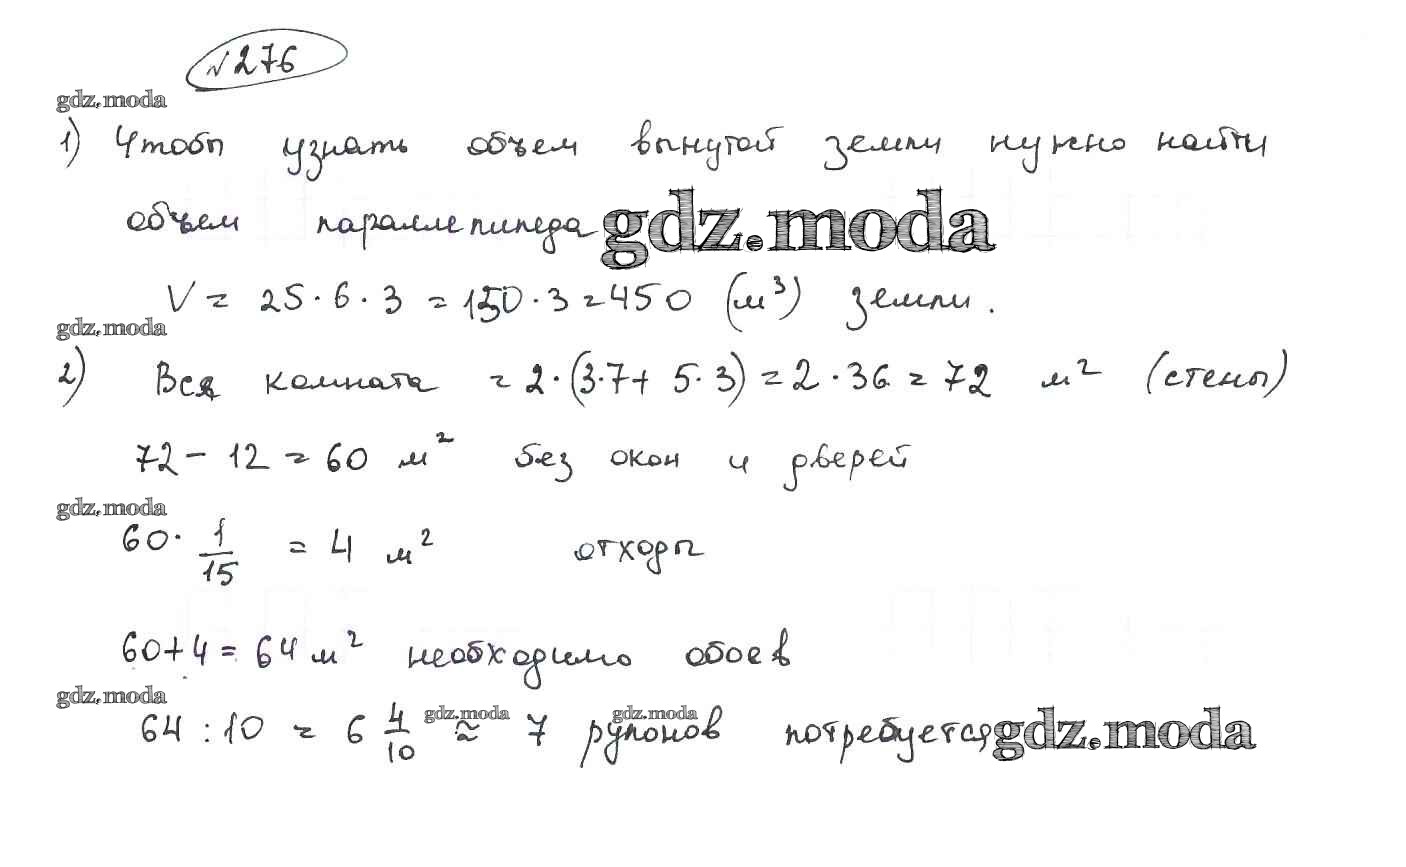 №276
gdz.moda
1) Чтобы узнать объем вынутой земли нужно найти
объем параллепипеда gdz.moda
V = 25·6·3 = 150·3 = 450 (м³) земли.
gdz.moda
2) Вся комната = 2·(3·7+ 5·3) = 2·36 = 72 м² (стены)
72 - 12 = 60 м² без окон и дверей
gdz.moda
60· 1/15 = 4 м² отходы
60+4 = 64 м² необходимо обоев
gdz.moda
64 : 10 = 6 4/10 gdz.moda ≈ 7 gdz.moda рулонов потребуется gdz.moda